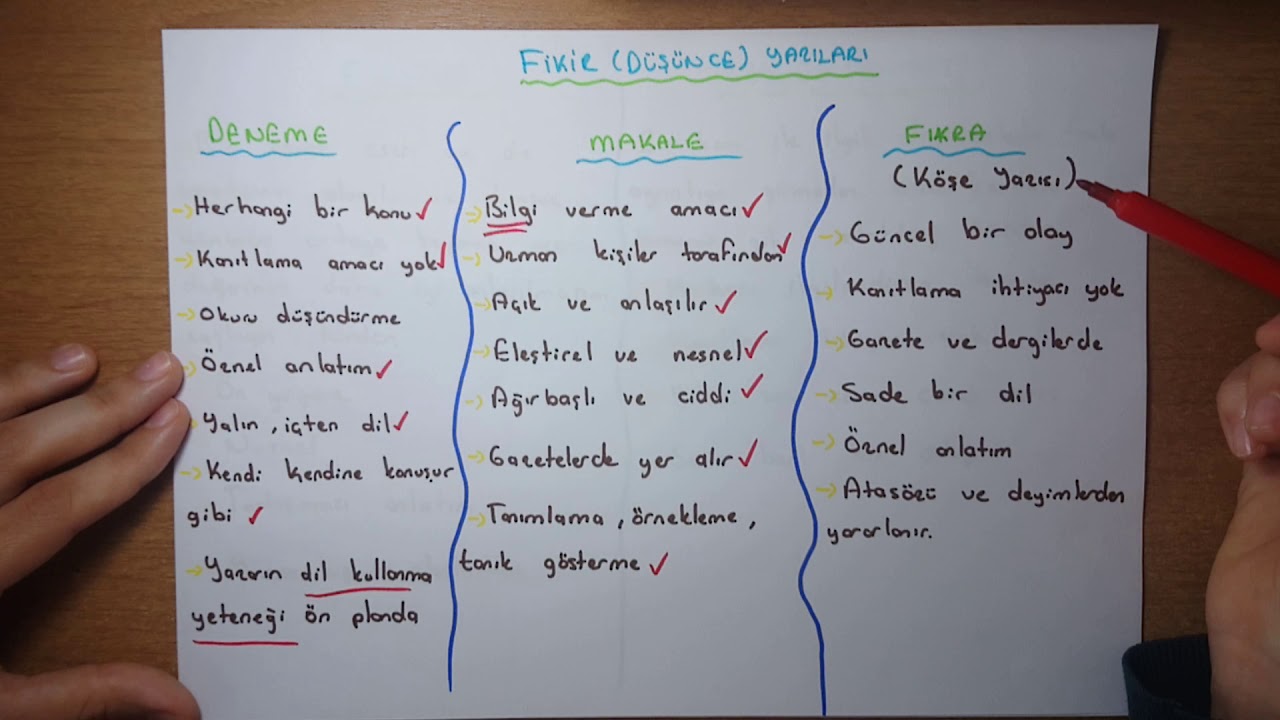 FİKİR (DÜŞÜNCE) YAZILARI
DENEME
Herhangi bir konu
Kanıtlama amacı yok
Okuru düşündürme
Öznel anlatım
Yalın, içten dil
Kendi kendine konuşur
gibi
Yazarın dil kullanma
yeteneği ön planda
MAKALE
Bilgi verme amacı
Uzman kişiler tarafından
Açık ve anlaşılır
Eleştirel ve nesnel
Ağırbaşlı ve ciddi
Gazetelerde yer alır
Tanımlama, örnekleme,
tanık gösterme
FIKRA
(Köşe Yazısı)
Güncel bir olay
Kanıtlama ihtiyacı yok
Gazete ve dergilerde
Sade bir dil
Öznel anlatım
Atasözü ve deyimlerden
yararlanır.